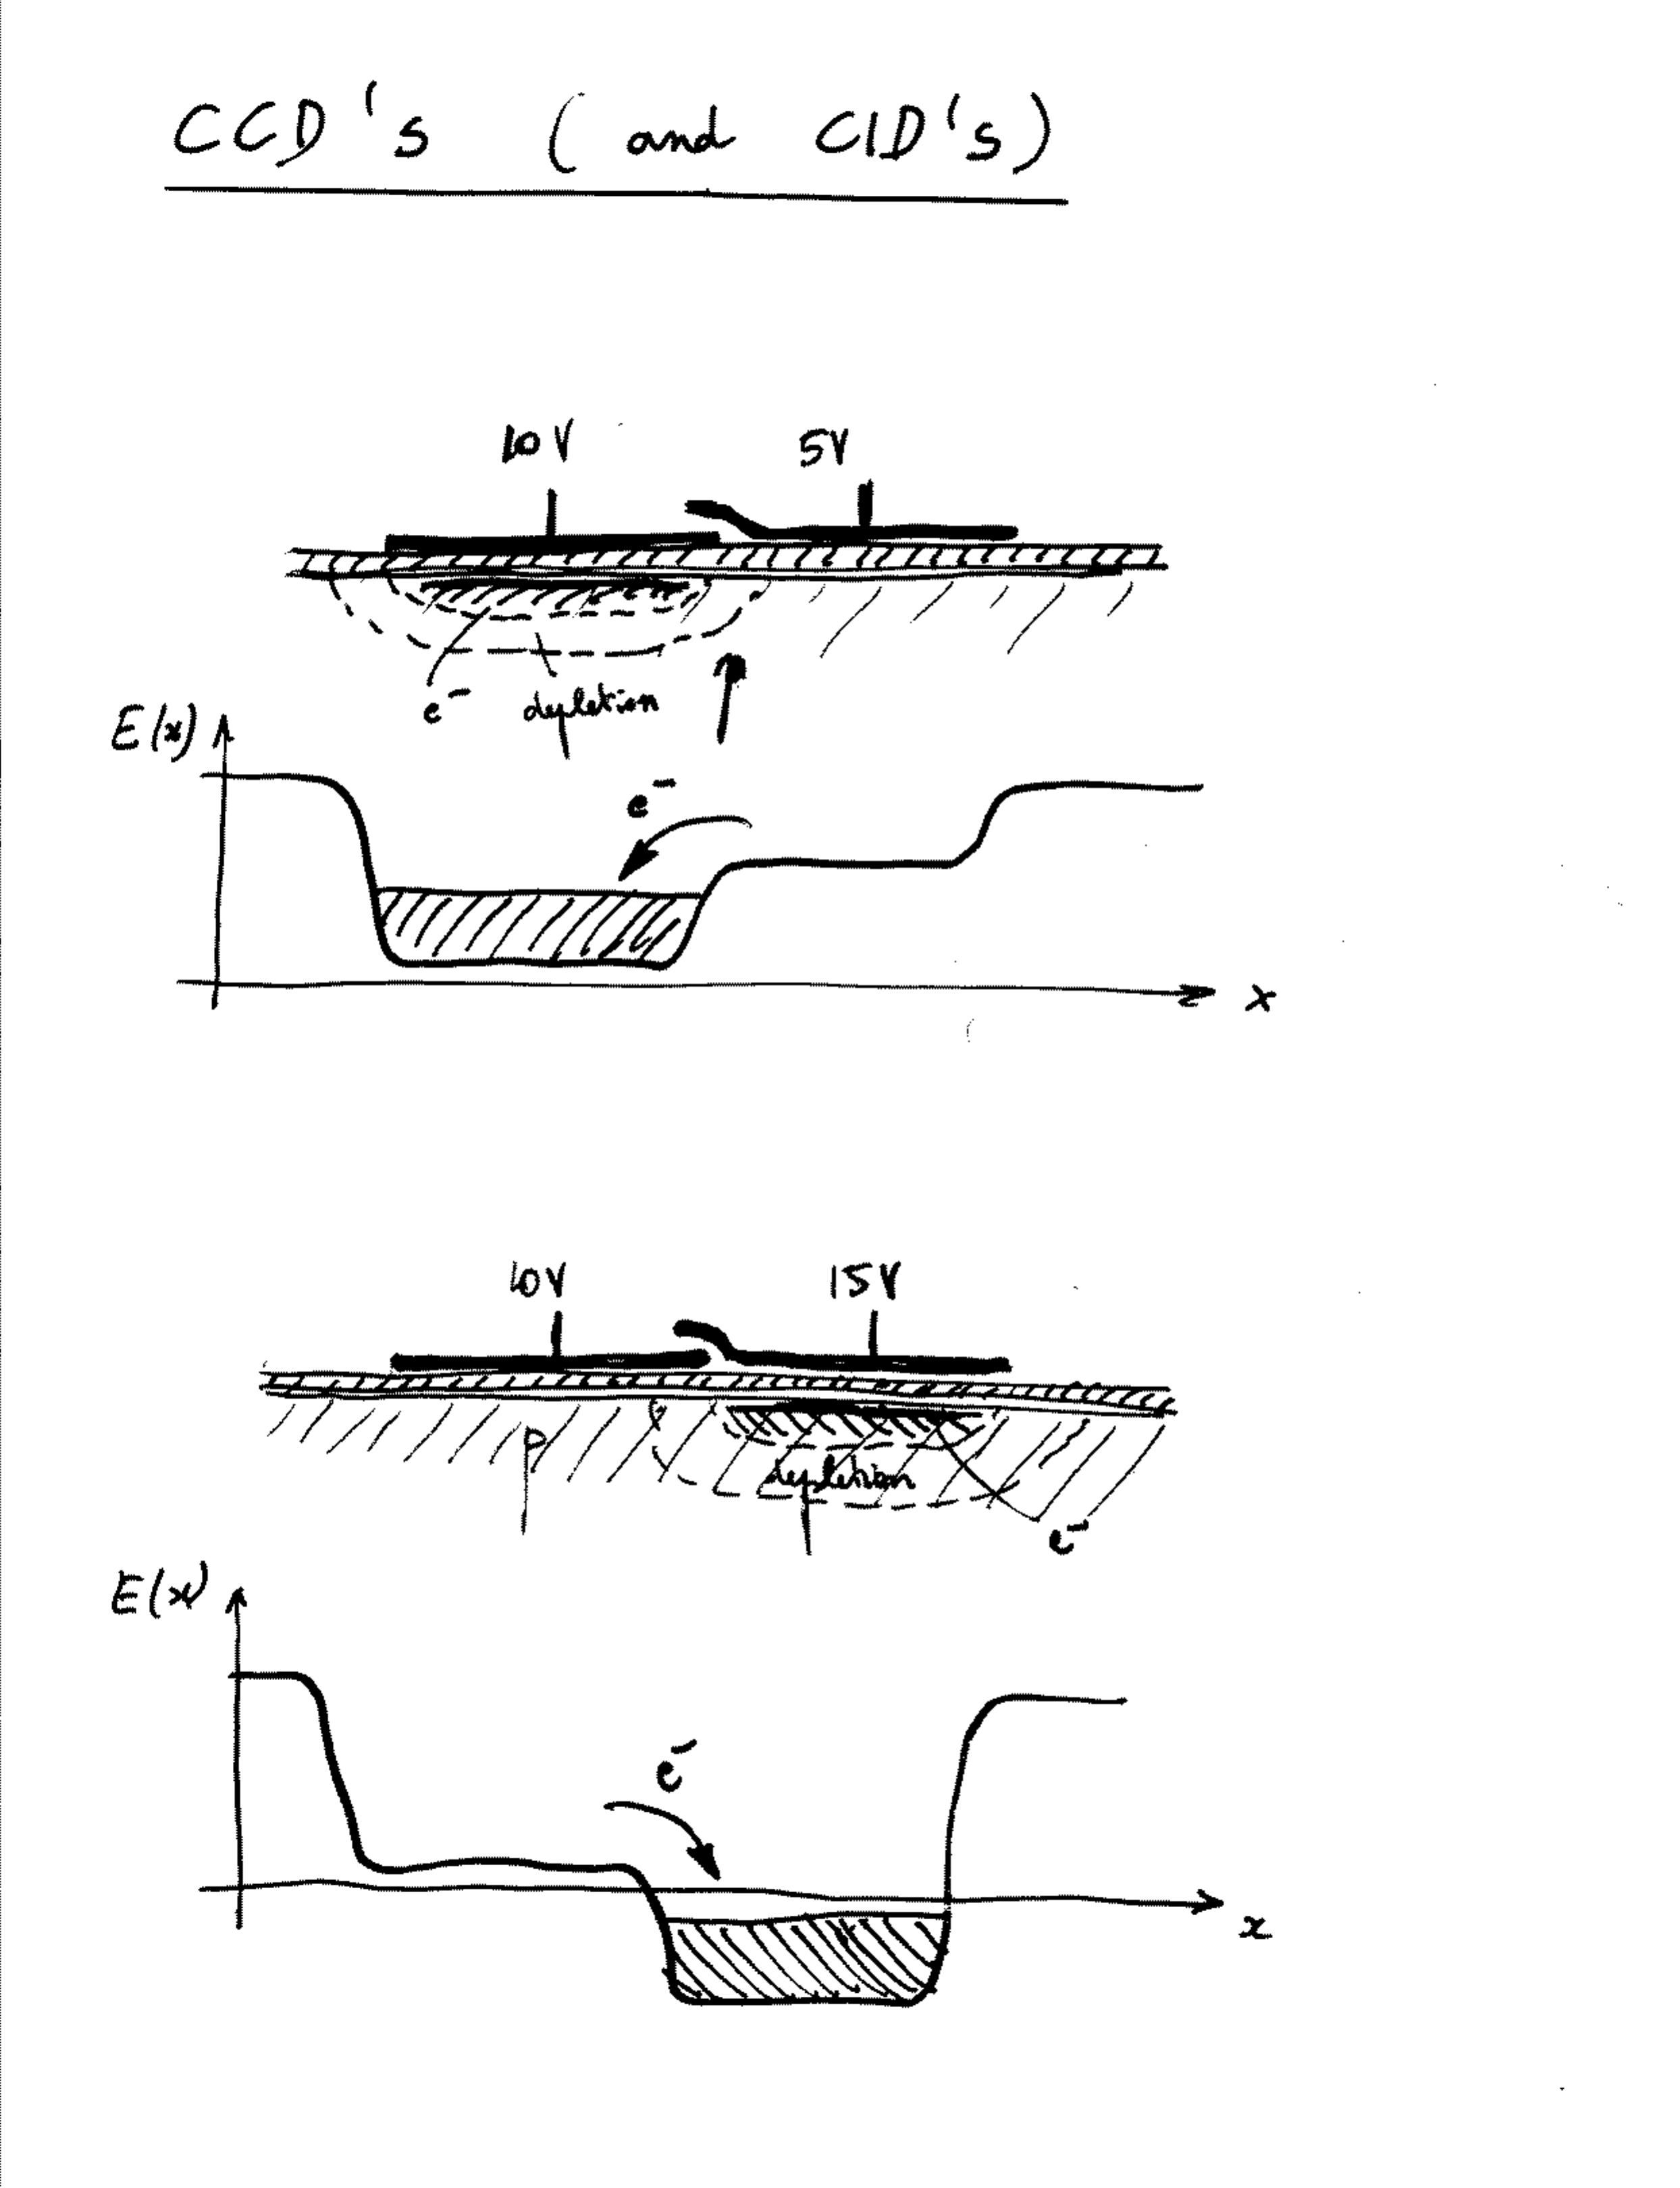 CCD's (and CID's)
10V 5V
e⁻ depletion
E(x)
e⁻
x
10V 15V
P
depletion
e⁻
E(x)
e⁻
x